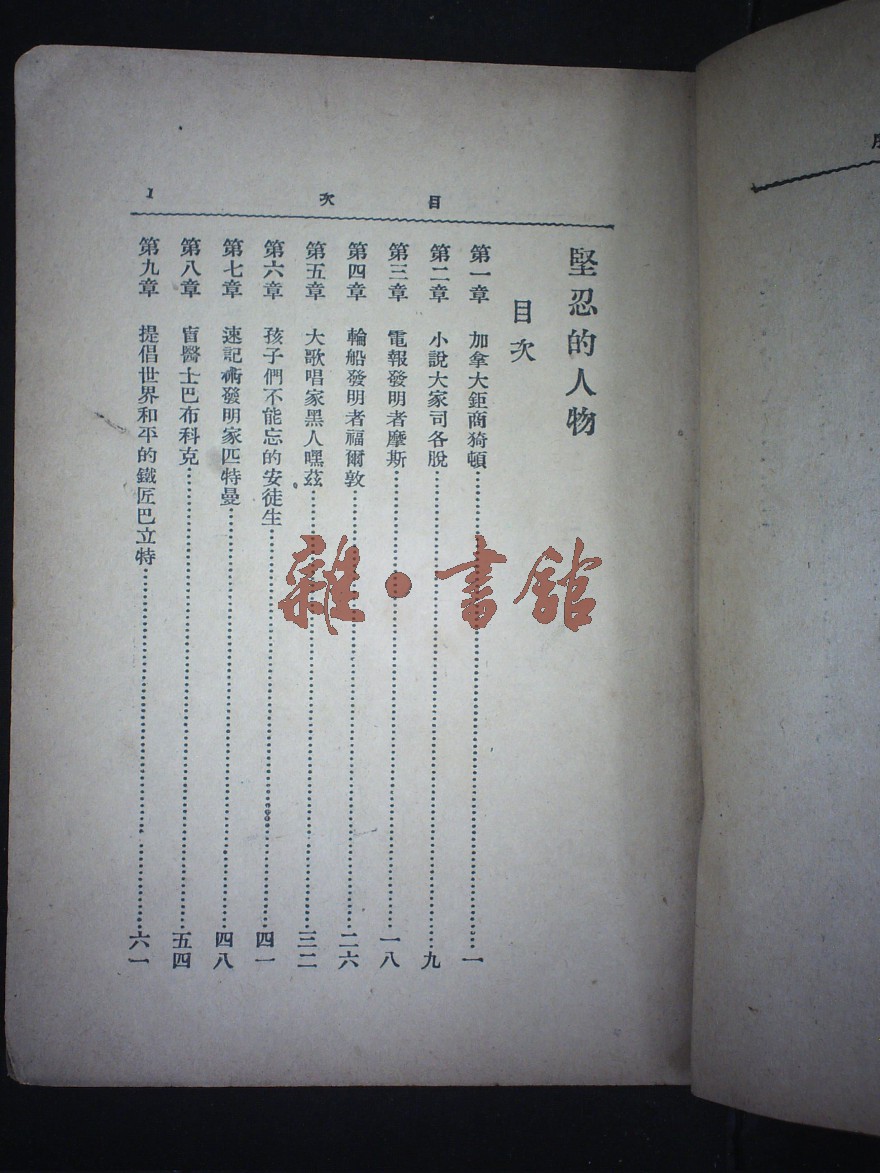 目 次 1
堅忍的人物
目次
第一章 加拿大鉅商猗頓……一
第二章 小說大家司各脫……九
第三章 電報發明者摩斯……一八
第四章 輪船發明者福爾敦……二六
第五章 大歌唱家黑人嘿茲……三二
第六章 孩子們不能忘的安徒生……四一
第七章 速記術發明家匹特曼……四八
第八章 盲醫士巴布科克……五四
第九章 提倡世界和平的鐵匠巴立特……六一
雜·書館